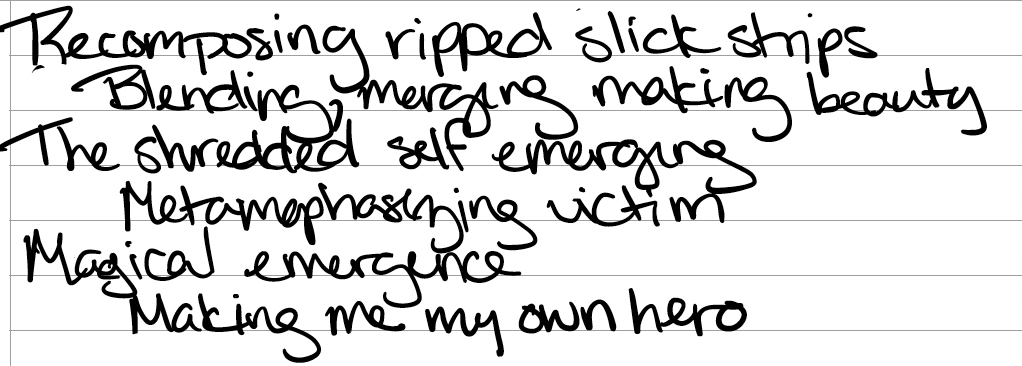 Recomposing ripped slick strips
Blending, merging making beauty
The shredded self emerging
Metamophasizing victim
Magical emergence
Making me my own hero